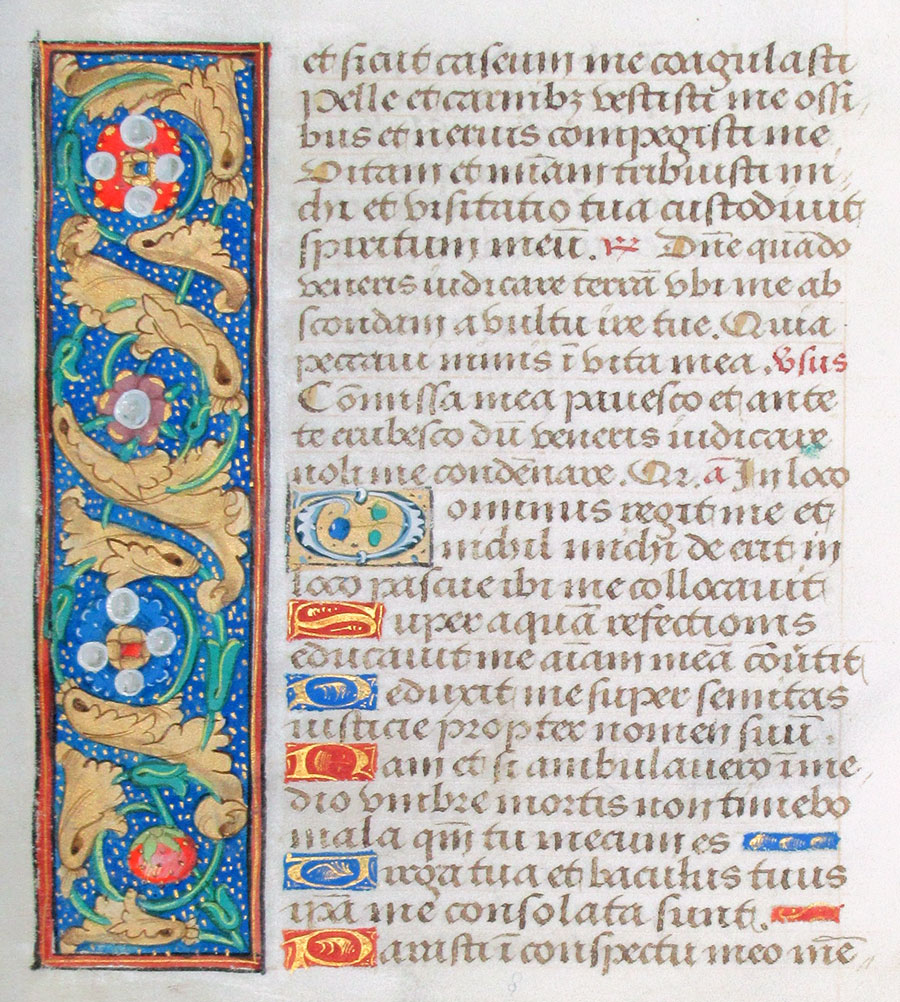 et sicut caseum me coagulasti
Pelle et carnibꝫ vestisti me ossi
bus et neruis compegisti me
Vitam et mi͞am tribuisti mi
chi et visitatio tua custodiuit
spiritum meū. ℟ Dn̄e quādo
veneris iudicare terrā vbi me ab
scondam a vultu ire tue. Quia
peccaui nimis ī vita mea. Vsus
Cōmissa mea pauesco et ante
te erubesco dū veneris iudicare
noli me condēnare. Qr. a Jn loco
Dominus regit me et
nichil michi deerit in
loco pascue ibi me collocauit
Super aquā refectionis
educauit me aīam meā cōuertit
Deduxit me super semitas
iusticie propter nomen suū.
Nam et si ambulauero ī me
dio vmbre mortis non timebo
mala qm̄ tu mecum es
Virga tua et baculus tuus
ip̄a me consolata sunt.
Parasti ī conspectu meo mē